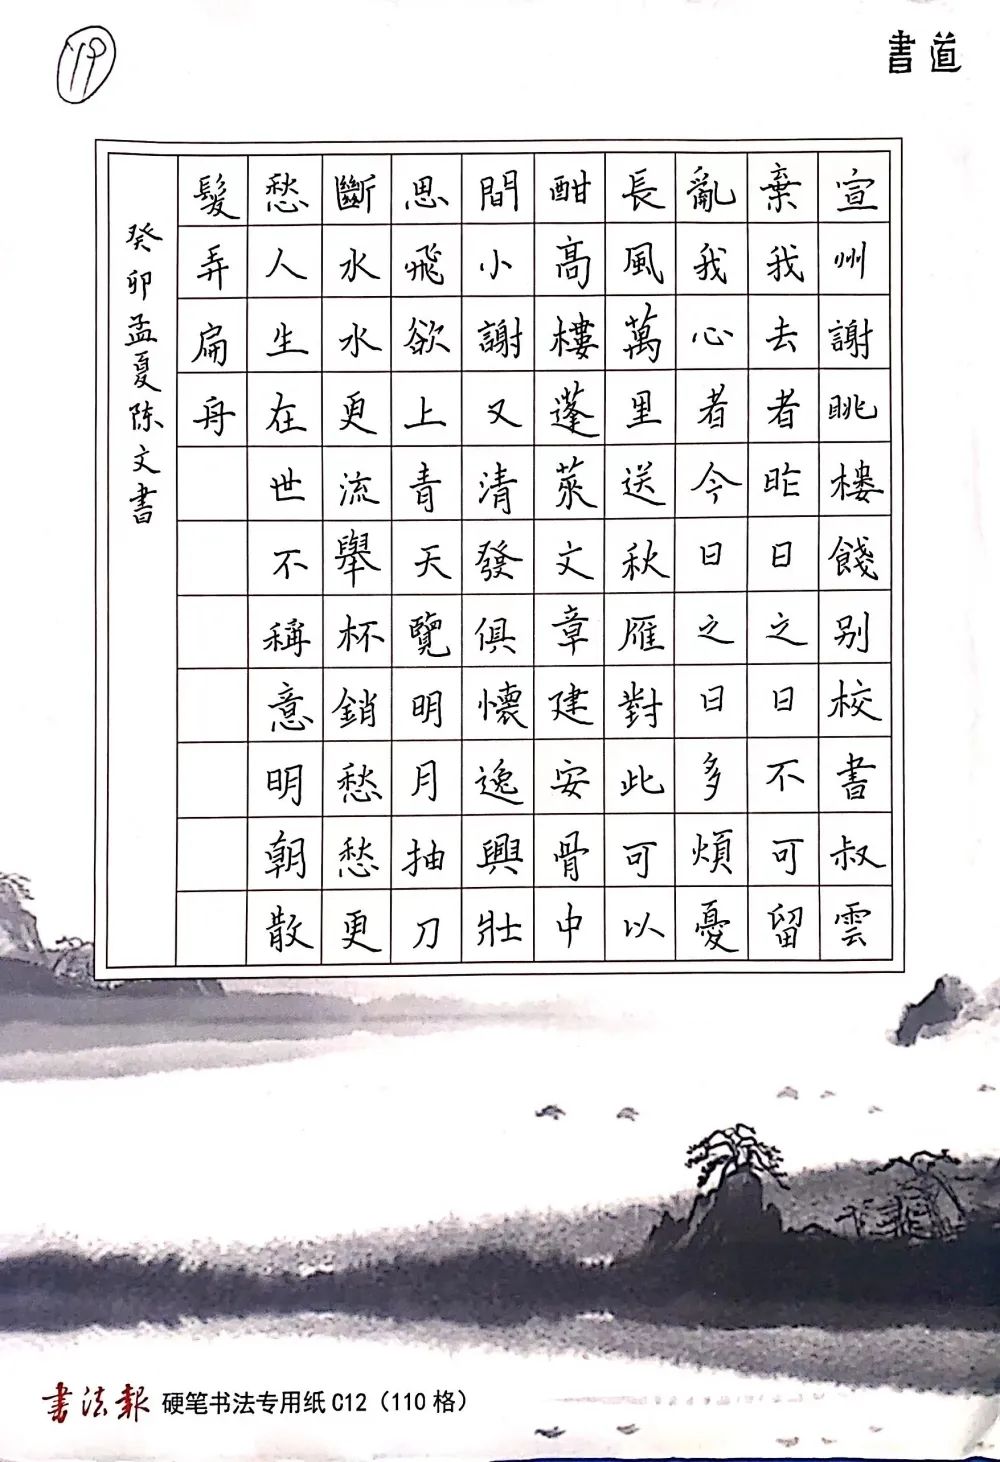 19
書道
宣州謝眺樓餞别校書叔雲
棄我去者昨日之日不可留
亂我心者今日之日多煩憂
長風萬里送秋雁對此可以
酣高樓蓬萊文章建安骨中
間小謝又清發俱懷逸興壯
思飛欲上青天覽明月抽刀
斷水水更流舉杯銷愁愁更
愁人生在世不稱意明朝散
髮弄扁舟
癸卯孟夏陈文書
书法報 硬笔书法专用纸C12（110格）